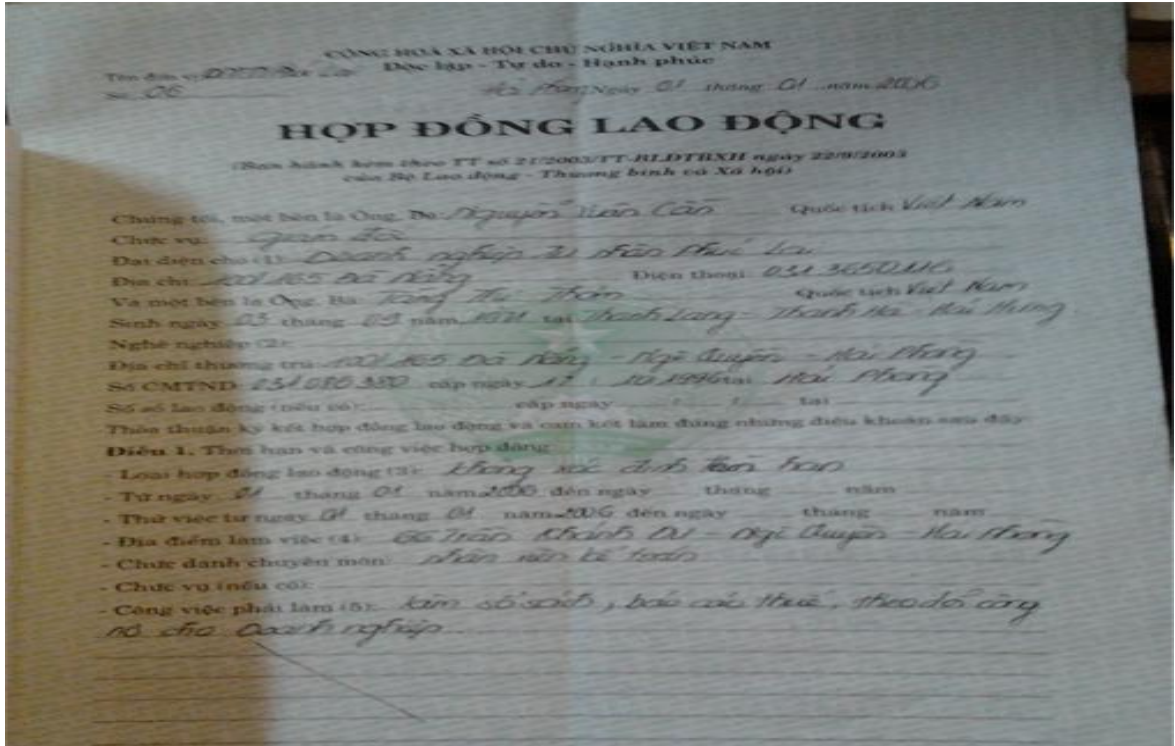 CỘNG HOÀ XÃ HỘI CHỦ NGHĨA VIỆT NAM
Độc lập - Tự do - Hạnh phúc
Tên đơn vị:
Số: 06
Ngày 01 tháng 01 năm 2006
HỢP ĐỒNG LAO ĐỘNG
(Ban hành kèm theo TT số 21/2003/TT-BLĐTBXH ngày 22/9/2003
của Bộ Lao động - Thương binh và Xã hội)
Chúng tôi, một bên là Ông, Bà: Nguyễn Xuân Quốc tịch Việt Nam
Chức vụ: Giám đốc
Đại diện cho (1): Doanh nghiệp tư nhân Phú
Địa chỉ: 100/165 Đà Nẵng Điện thoại: 031 3650
Và một bên là Ông, Bà: Thị Quốc tịch Việt Nam
Sinh ngày 03 tháng 09 năm tại Thanh Lang - Thanh Hà - Hải Hưng
Nghề nghiệp (2):
Địa chỉ thường trú: 100/165 Đà Nẵng - Ngô Quyền - Hải Phòng
Số CMTND: cấp ngày 10 1996 tại Hải Phòng
Số sổ lao động (nếu có): cấp ngày / / tại
Thỏa thuận ký kết hợp đồng lao động và cam kết làm đúng những điều khoản sau đây:
Điều 1. Thời hạn và công việc hợp đồng
- Loại hợp đồng lao động (3): không xác định thời hạn
- Từ ngày 01 tháng 01 năm 2006 đến ngày tháng năm
- Thử việc từ ngày 01 tháng 01 năm 2006 đến ngày tháng năm
- Địa điểm làm việc (4): Trần Khánh Dư - Ngô Quyền - Hải Phòng
- Chức danh chuyên môn: nhân viên kế toán
- Chức vụ (nếu có):
- Công việc phải làm (5): làm sổ sách, báo cáo thuế, theo dõi công
nợ cho Doanh nghiệp